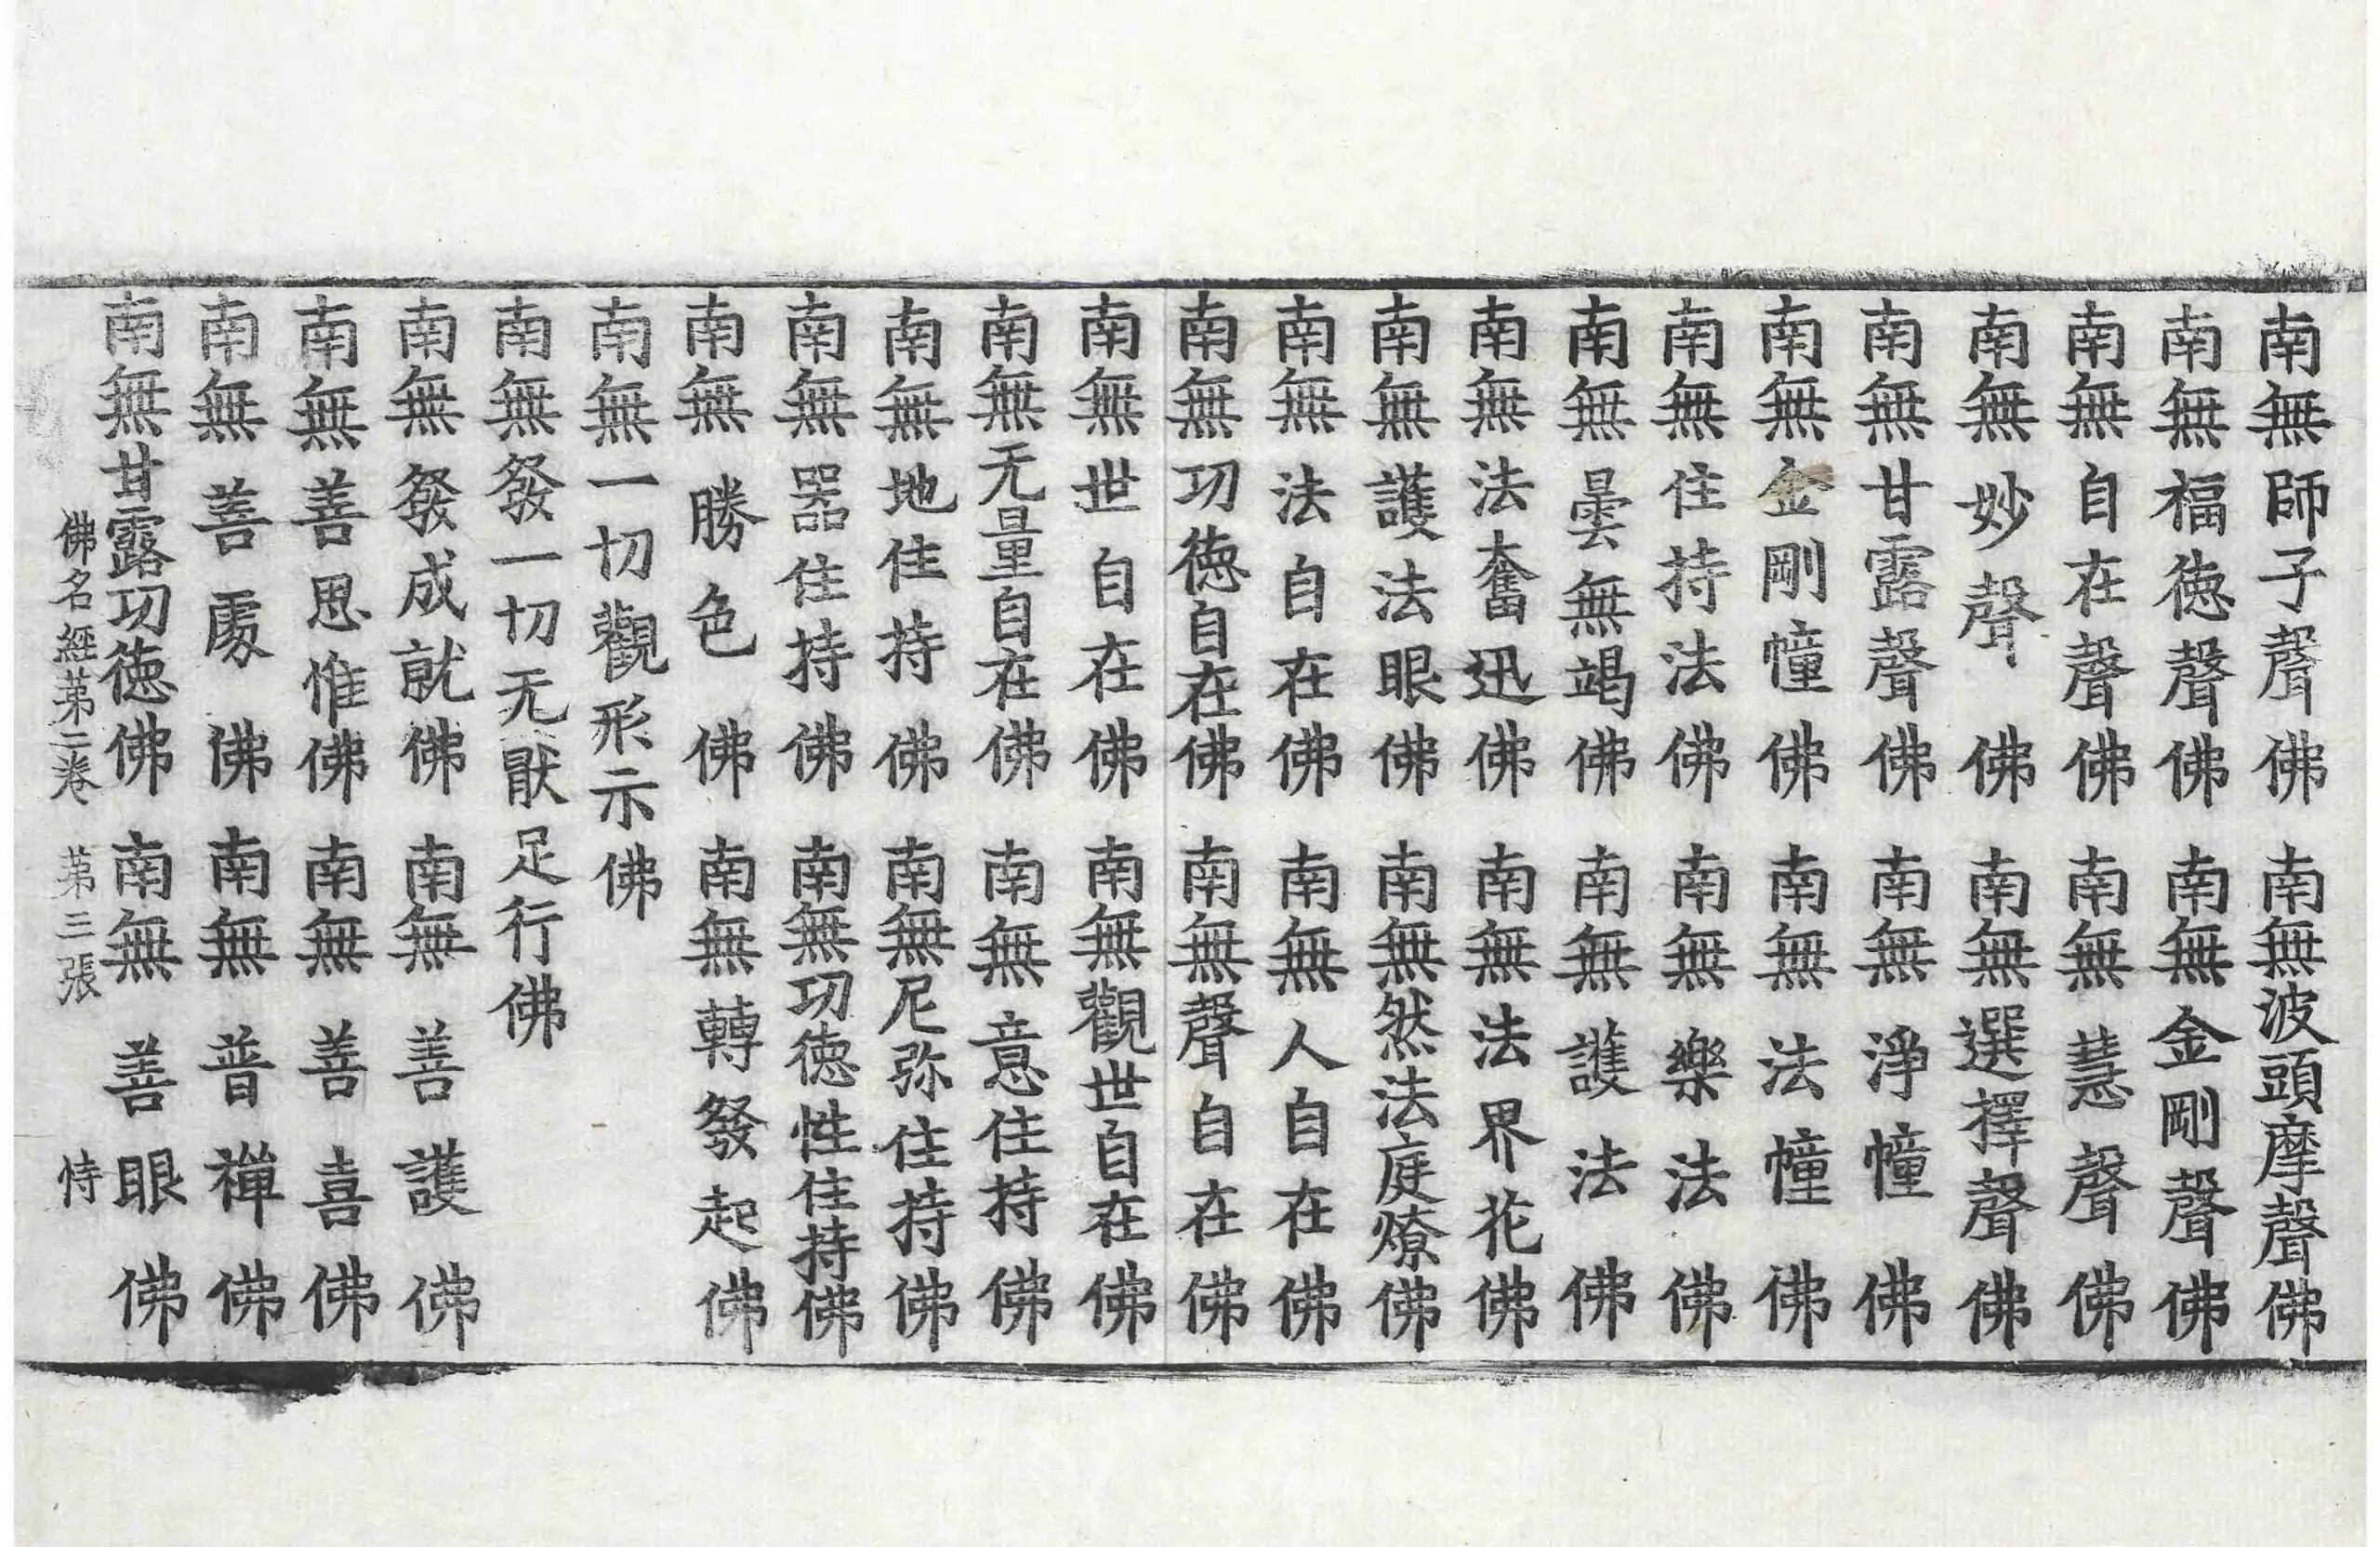 南無師子聲佛　南無波頭摩聲佛
南無福徳聲佛　南無金剛聲佛
南無自在聲佛　南無慧聲佛
南無妙聲佛　南無選擇聲佛
南無甘露聲佛　南無淨幢佛
南無金剛幢佛　南無法幢佛
南無住持法佛　南無樂法佛
南無曇無竭佛　南無護法佛
南無法奮迅佛　南無法界花佛
南無護法眼佛　南無然法庭燎佛
南無法自在佛　南無人自在佛
南無功徳自在佛　南無聲自在佛
南無世自在佛　南無觀世自在佛
南無无量自在佛　南無意住持佛
南無地住持佛　南無尼弥住持佛
南無器住持佛　南無功徳性住持佛
南無勝色佛　南無轉發起佛
南無一切觀形示佛
南無發一切无猒足行佛
南無發成就佛　南無善護佛
南無善思惟佛　南無善喜佛
南無善處佛　南無普禪佛
南無甘露功徳佛　南無善眼佛
佛名經第二卷　第三張　恃